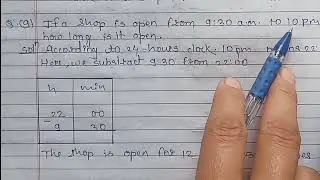 3.(g) If a shop is open from 9:30 a.m. to 10 pm
how long is it open.
Solⁿ According to 24-hours clock, 10pm 22
Here, we substract 9:30 from 22:00
h min
22 00
- 9 30
The shop is open for 12